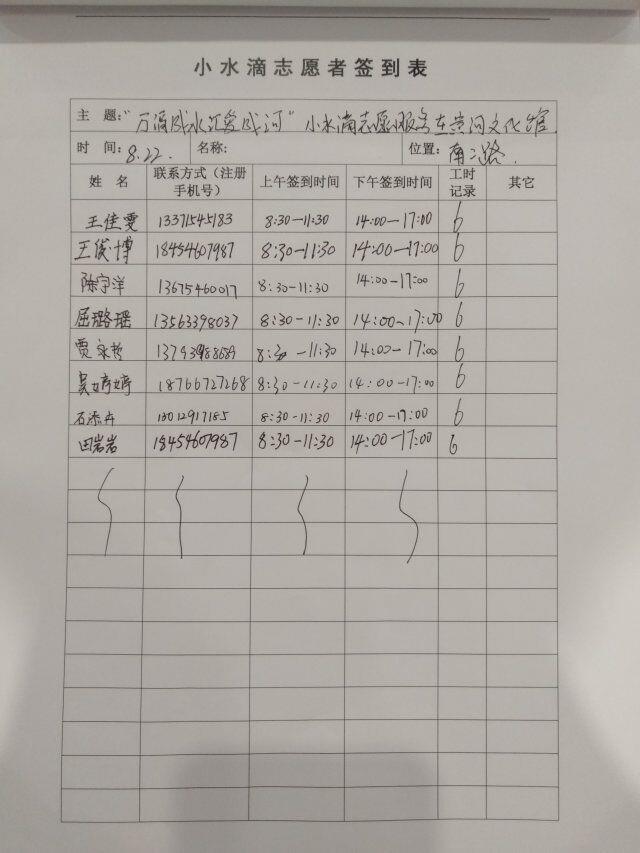 小水滴志愿者签到表
主 题："万滴成水汇爱成河"小水滴志愿服务在黄河文化馆.
时 间：8.22. 名称： 位置：南二路.
姓 名 联系方式（注册手机号） 上午签到时间 下午签到时间 工时记录 其它
王佳雯 13371545183 8:30-11:30 14:00-17:00 6
王俊博 18454607987 8:30-11:30 14:00-17:00 6
陈宇洋 13675460017 8:30-11:30 14:00-17:00 6
屈璐瑶 13563398037 8:30-11:30 14:00-17:00 6
贾永哲 8:30-11:30 14:00-17:00 6
吴婷婷 18766727268 8:30-11:30 14:00-17:00 6
石添卉 13012917185 8:30-11:30 14:00-17:00 6
田岩岩 18454607987 8:30-11:30 14:00-17:00 6